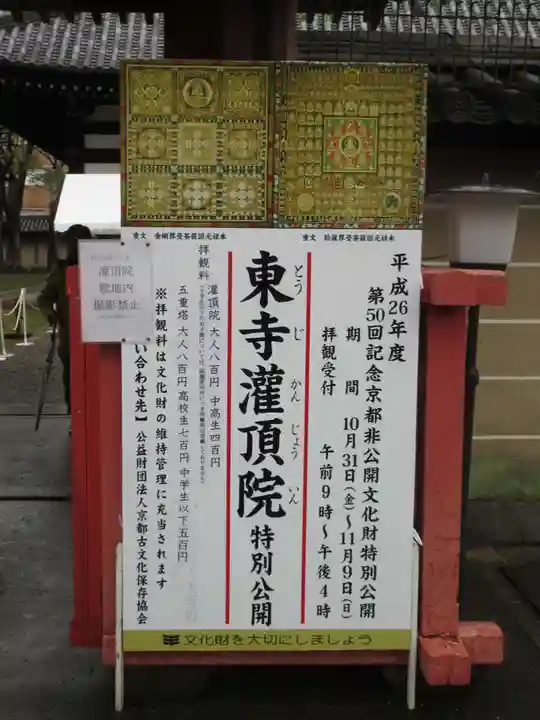 平成26年度
第50回記念京都非公開文化財特別公開
期間 10月31日(金)〜11月9日(日)
拝観受付 午前9時〜午後4時
東寺灌頂院 特別公開
とうじかんじょういん
拝観料 灌頂院 大人八百円 中高生四百円
五重塔 大人八百円 高校生七百円 中学生以下五百円
※拝観料は文化財の維持管理に充当されます
い合わせ先】 公益財団法人京都古文化保存協会
重文 金剛界曼荼羅図元禄本
重文 胎蔵界曼荼羅図元禄本
文化財を大切にしましょう
灌頂院
敷地内
撮影禁止